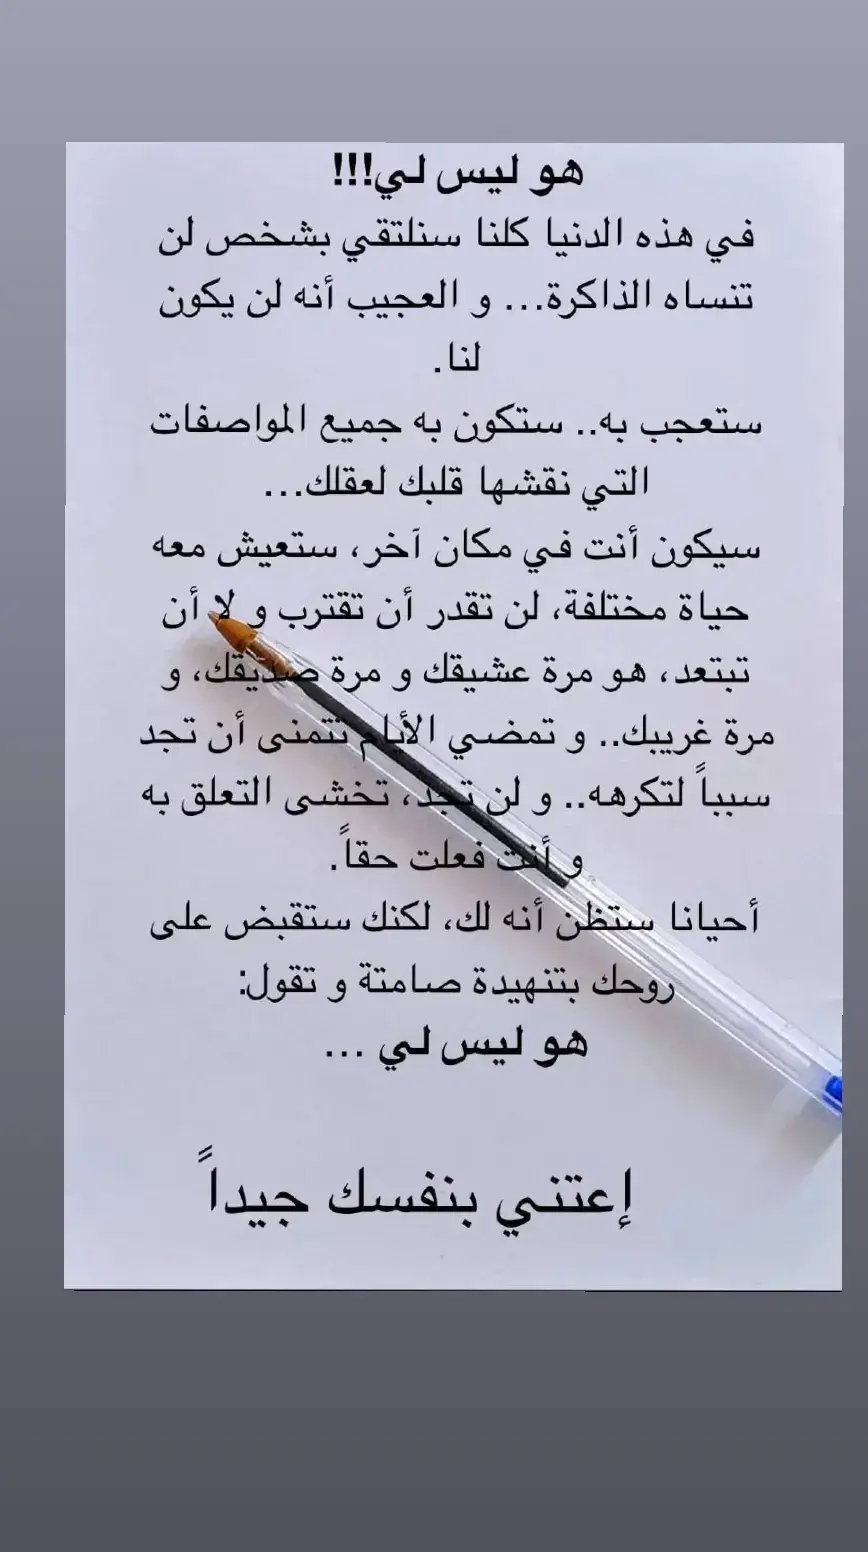 هو ليس لي!!!
في هذه الدنيا كلنا سنلتقي بشخص لن
تنساه الذاكرة... و العجيب أنه لن يكون
لنا.
ستعجب به.. ستكون به جميع المواصفات
التي نقشها قلبك لعقلك...
سيكون أنت في مكان آخر، ستعيش معه
حياة مختلفة، لن تقدر أن تقترب و لا أن
تبتعد، هو مرة عشيقك و مرة صديقك، و
مرة غريبك.. و تمضي الأيام تتمنى أن تجد
سبباً لتكرهه.. و لن تجد، تخشى التعلق به
و أنت فعلت حقاً.
أحيانا ستظن أنه لك، لكنك ستقبض على
روحك بتنهيدة صامتة و تقول:
هو ليس لي ...
إعتني بنفسك جيداً